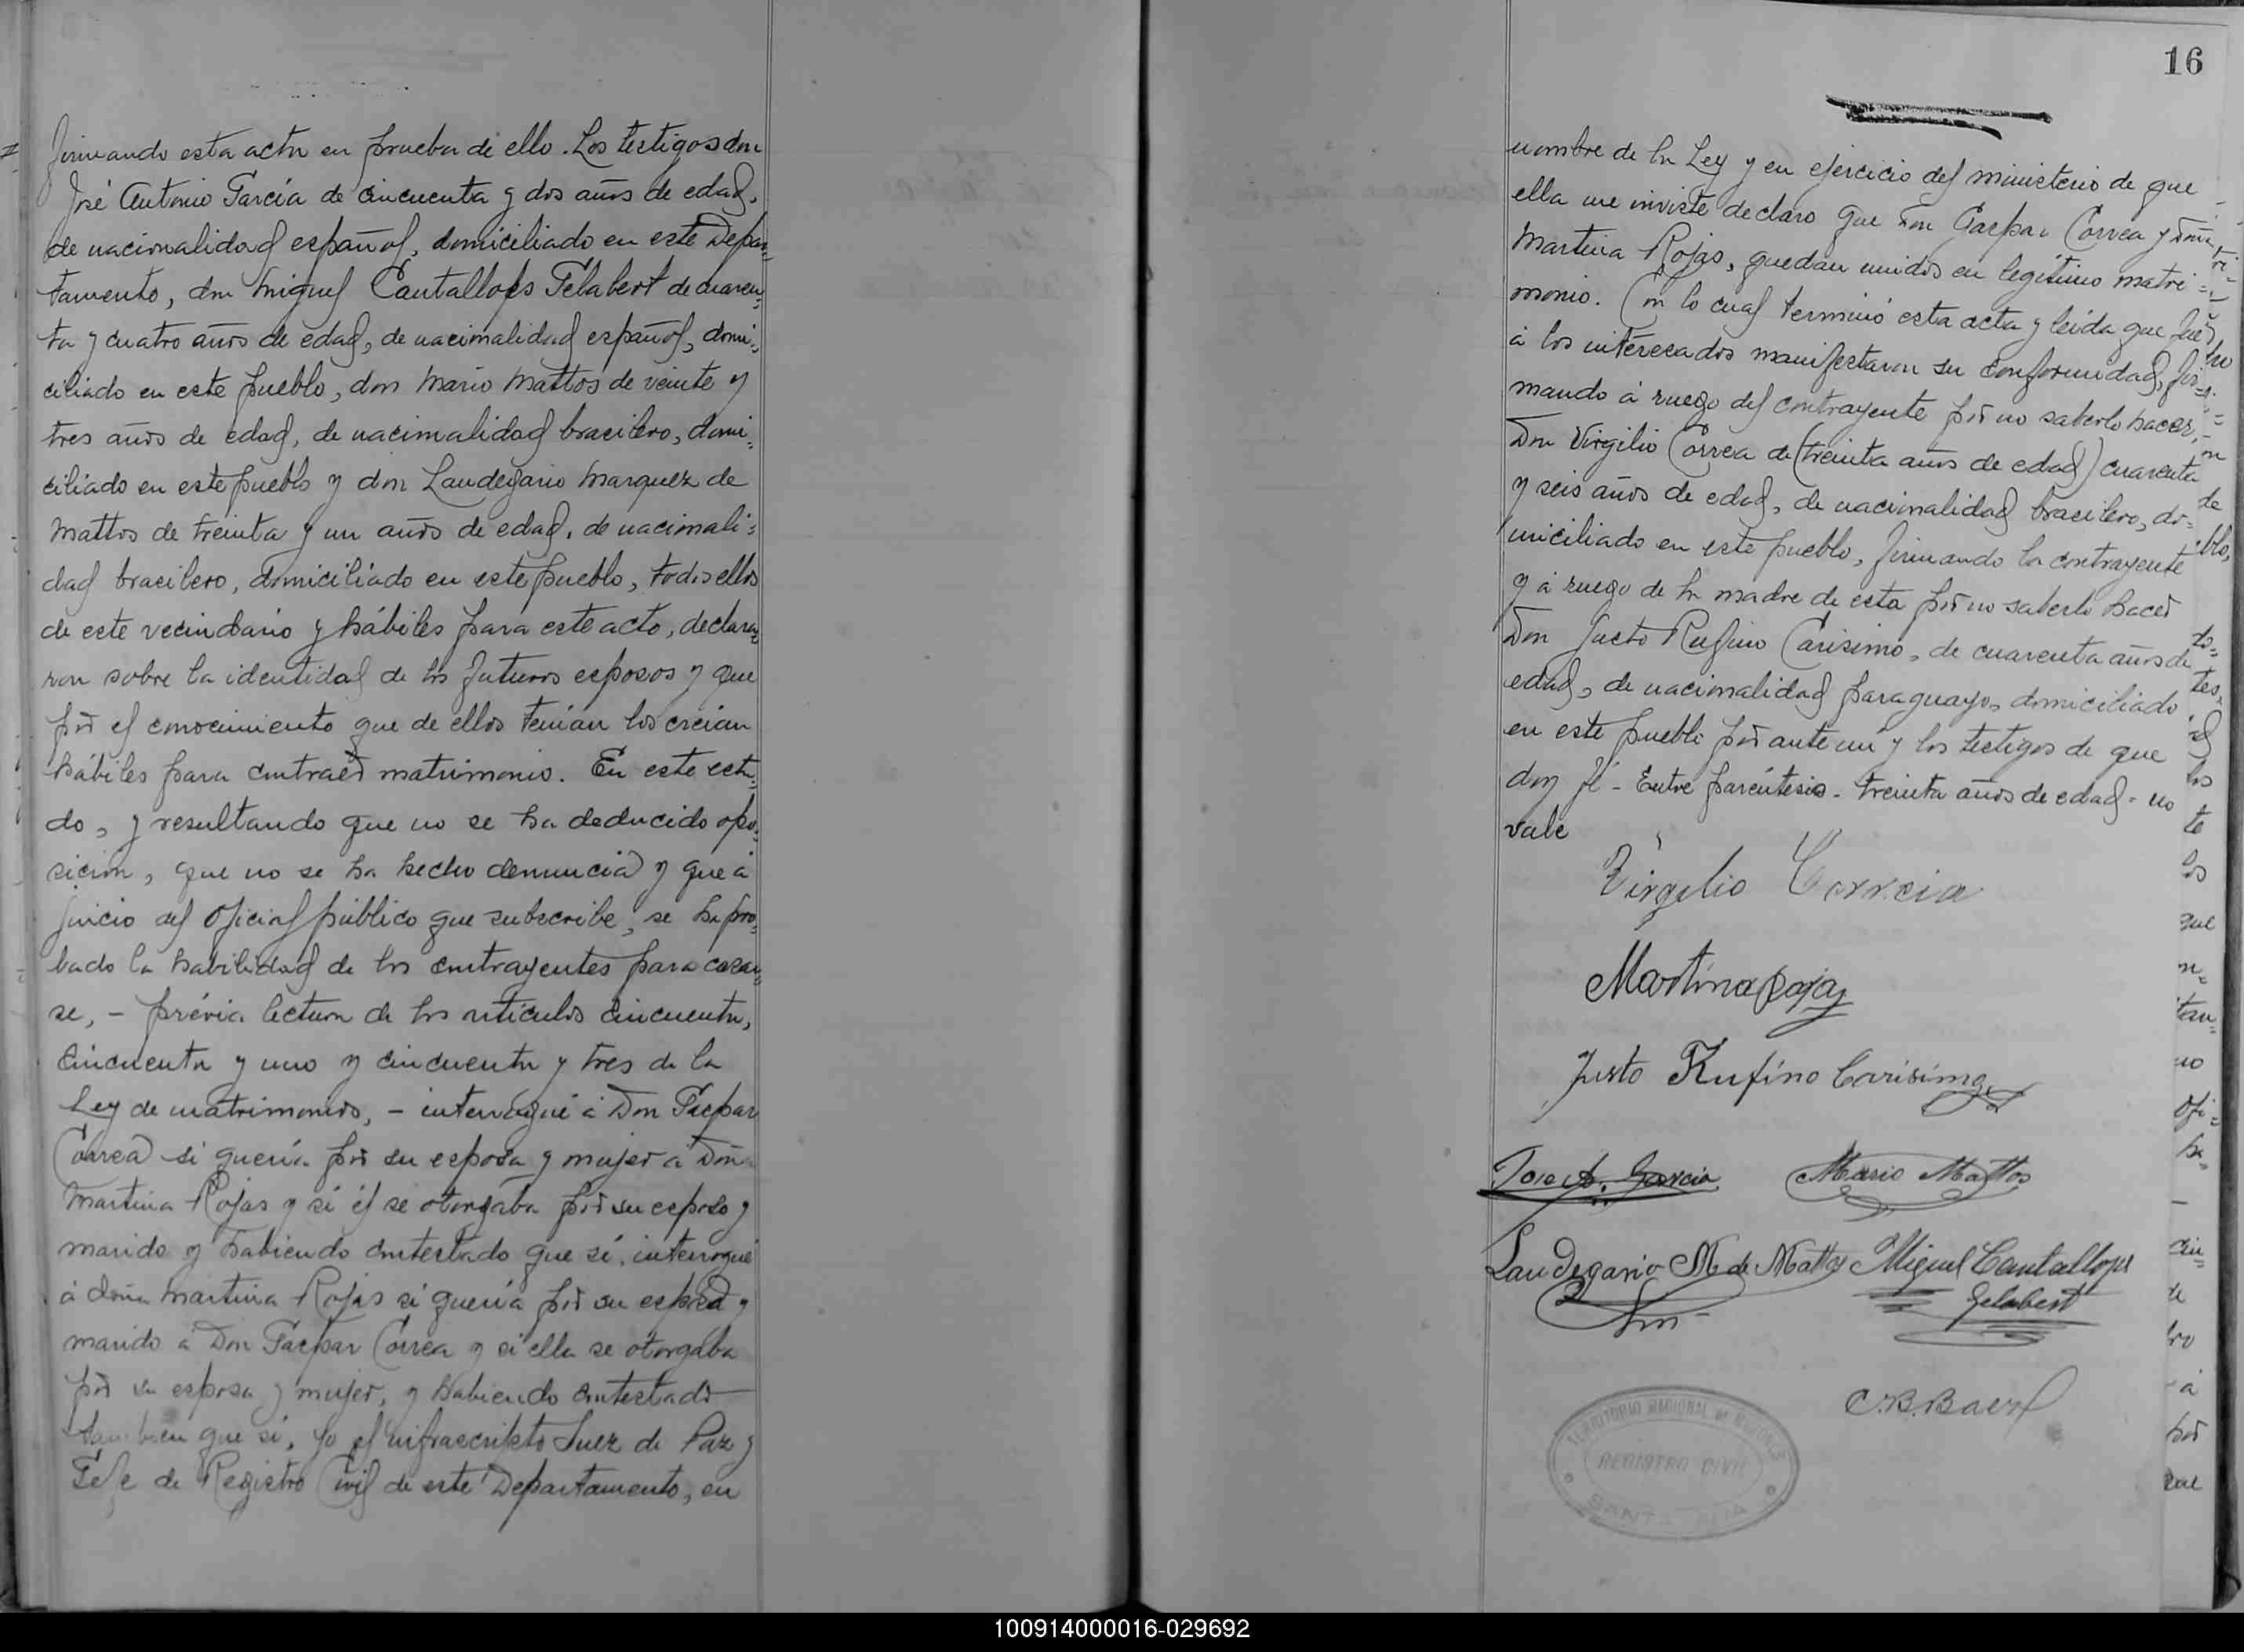 firmando esta acta en prueba de ello. Los testigos don
José Antonio García de cincuenta y dos años de edad,
de nacionalidad español, domiciliado en este Depar=
tamento, don Miguel Cantallops Gelabert de cuaren=
ta y cuatro años de edad, de nacionalidad español, domi=
ciliado en este pueblo, don Mario Mattos de veinte y
tres años de edad, de nacionalidad brasilero, domi=
ciliado en este pueblo y don Laudegario Marquez de
Mattos de treinta y un años de edad, de nacionali=
dad brasilero, domiciliado en este pueblo, todos ellos
de este vecindario y hábiles para este acto, declara=
ron sobre la identidad de los futuros esposos y que
por el conocimiento que de ellos tenían los creían
hábiles para contraer matrimonio. En este esta=
do, y resultando que no se ha deducido opo=
sición, que no se ha hecho denuncia y que á
juicio del Oficial público que subscribe, se ha pro=
bado la habilidad de los contrayentes para casar=
se, - prévia lectura de los artículos cincuenta,
cincuenta y uno y cincuenta y tres de la
Ley de matrimonios, - interrogué á Don Gaspar
Correa si quería por su esposa y mujer á Doña
Martina Rojas y si él se otorgaba por su esposo y
marido y habiendo contestado que sí, interrogué
á doña Martina Rojas si quería por su esposo y
marido á Don Gaspar Correa y si ella se otorgaba
por su esposa y mujer, y habiendo contestado
también que sí, Yo el infrascripto Juez de Paz y
Jefe de Registro Civil de este Departamento, en
16
nombre de la Ley y en ejercicio del ministerio de que
ella me inviste declaro que Don Gaspar Correa y Doña
Martina Rojas, quedan unidos en legítimo matri=
monio. Con lo cual terminó esta acta y leída que fué
á los interesados manifestaron su conformidad, fir=
mando á ruego del contrayente por no saberlo hacer,
Don Virgilio Correa de (treinta años de edad) cuarenta
y seis años de edad, de nacionalidad brasilero, do=
miciliado en este pueblo, firmando la contrayente
y á ruego de la madre de esta por no saberlo hacer
Don Justo Rufino Carisimo, de cuarenta años de
edad, de nacionalidad paraguayo, domiciliado
en este pueblo por ante mi y los testigos de que
doy fé - Entre paréntesis - treinta años de edad - no
vale
Virgilio Correia
Martina Rojas
Justo Rufino Carisimo
Jose A. Garcia Mario Mattos
Laudegario M de Mattos Miguel Cantallops
Gelabert
C.B.Baez
TERRITORIO NACIONAL DE MISIONES
REGISTRO CIVIL
SANTA ANA
100914000016-029692